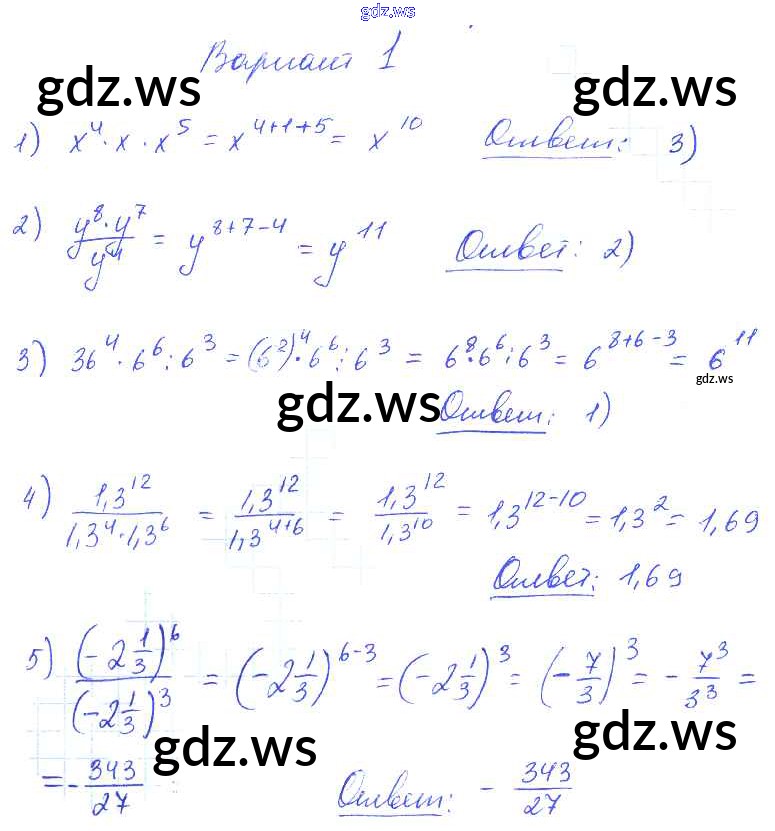 gdz.ws
Вариант 1
gdz.ws gdz.ws
1) x⁴ · x · x⁵ = x⁴⁺¹⁺⁵ = x¹⁰ Ответ: 3)
2) (y⁸ · y⁷)/y⁴ = y⁸⁺⁷⁻⁴ = y¹¹ Ответ: 2)
3) 36⁴ · 6⁶ : 6³ = (6²)⁴ · 6⁶ : 6³ = 6⁸ · 6⁶ : 6³ = 6⁸⁺⁶⁻³ = 6¹¹
gdz.ws
gdz.ws Ответ: 1)
4) 1,3¹²/(1,3⁴ · 1,3⁶) = 1,3¹²/1,3⁴⁺⁶ = 1,3¹²/1,3¹⁰ = 1,3¹²⁻¹⁰ = 1,3² = 1,69
Ответ: 1,69
5) (-2 1/3)⁶/(-2 1/3)³ = (-2 1/3)⁶⁻³ = (-2 1/3)³ = (-7/3)³ = -7³/3³ =
gdz.ws gdz.ws
= -343/27 Ответ: -343/27